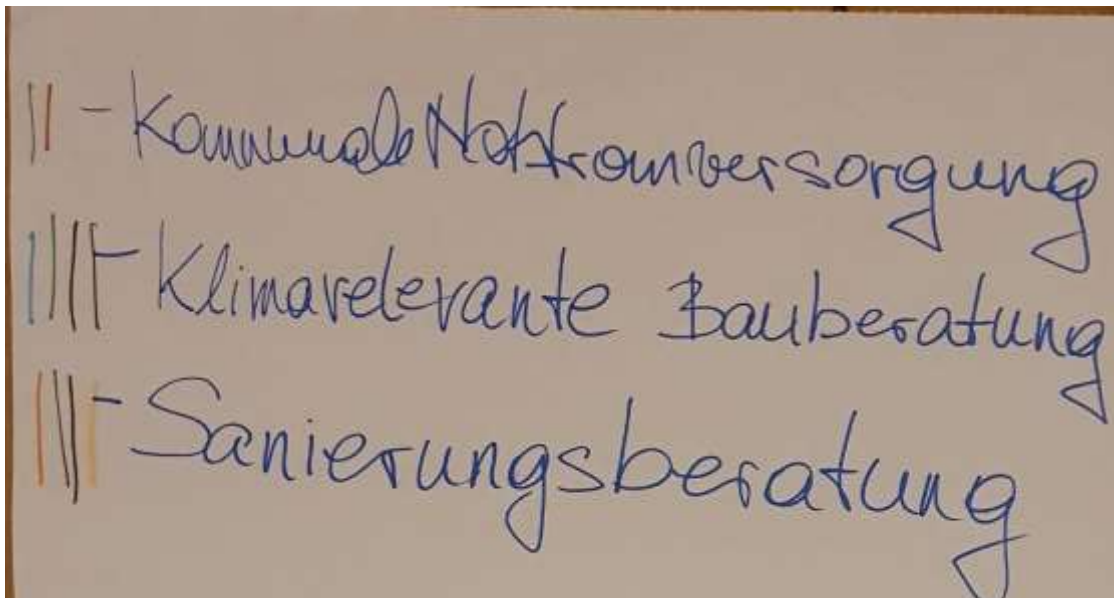 || - Kommunale Notstromversorgung
|||| - Klimarelevante Bauberatung
|||| - Sanierungsberatung